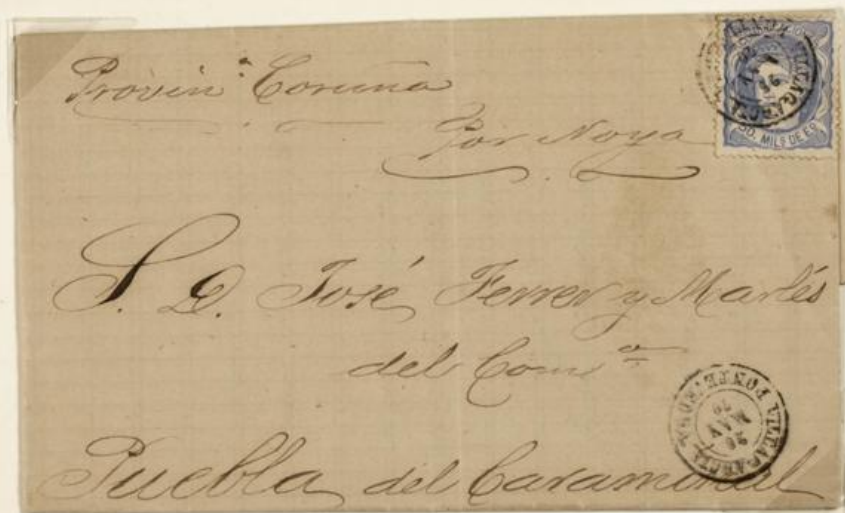 Provin.ª Coruña
Por Noya
50. MILS DE Eº
S. D. José Ferrer y Marlés
del Com.º
VILLAGARCIA
PONTEVEDRA
26
MAY
70
Puebla del Caramiñal